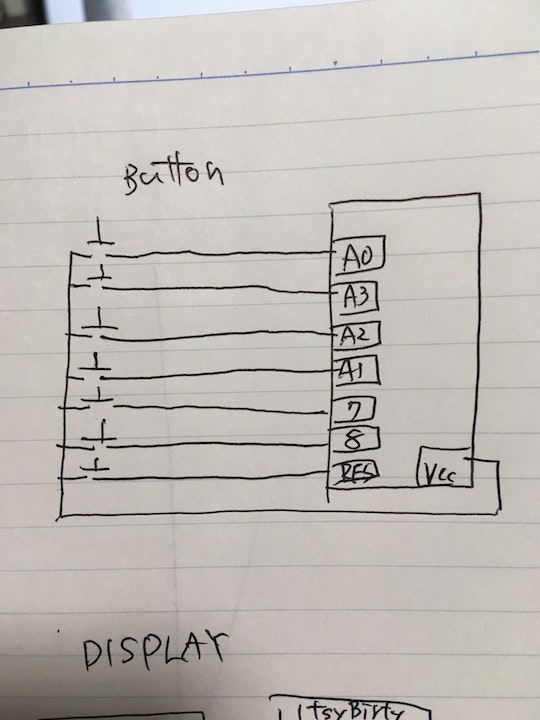 Button
A0
A3
A2
A1
7
8
RES
Vcc
DISPLAY
ItsyBirty